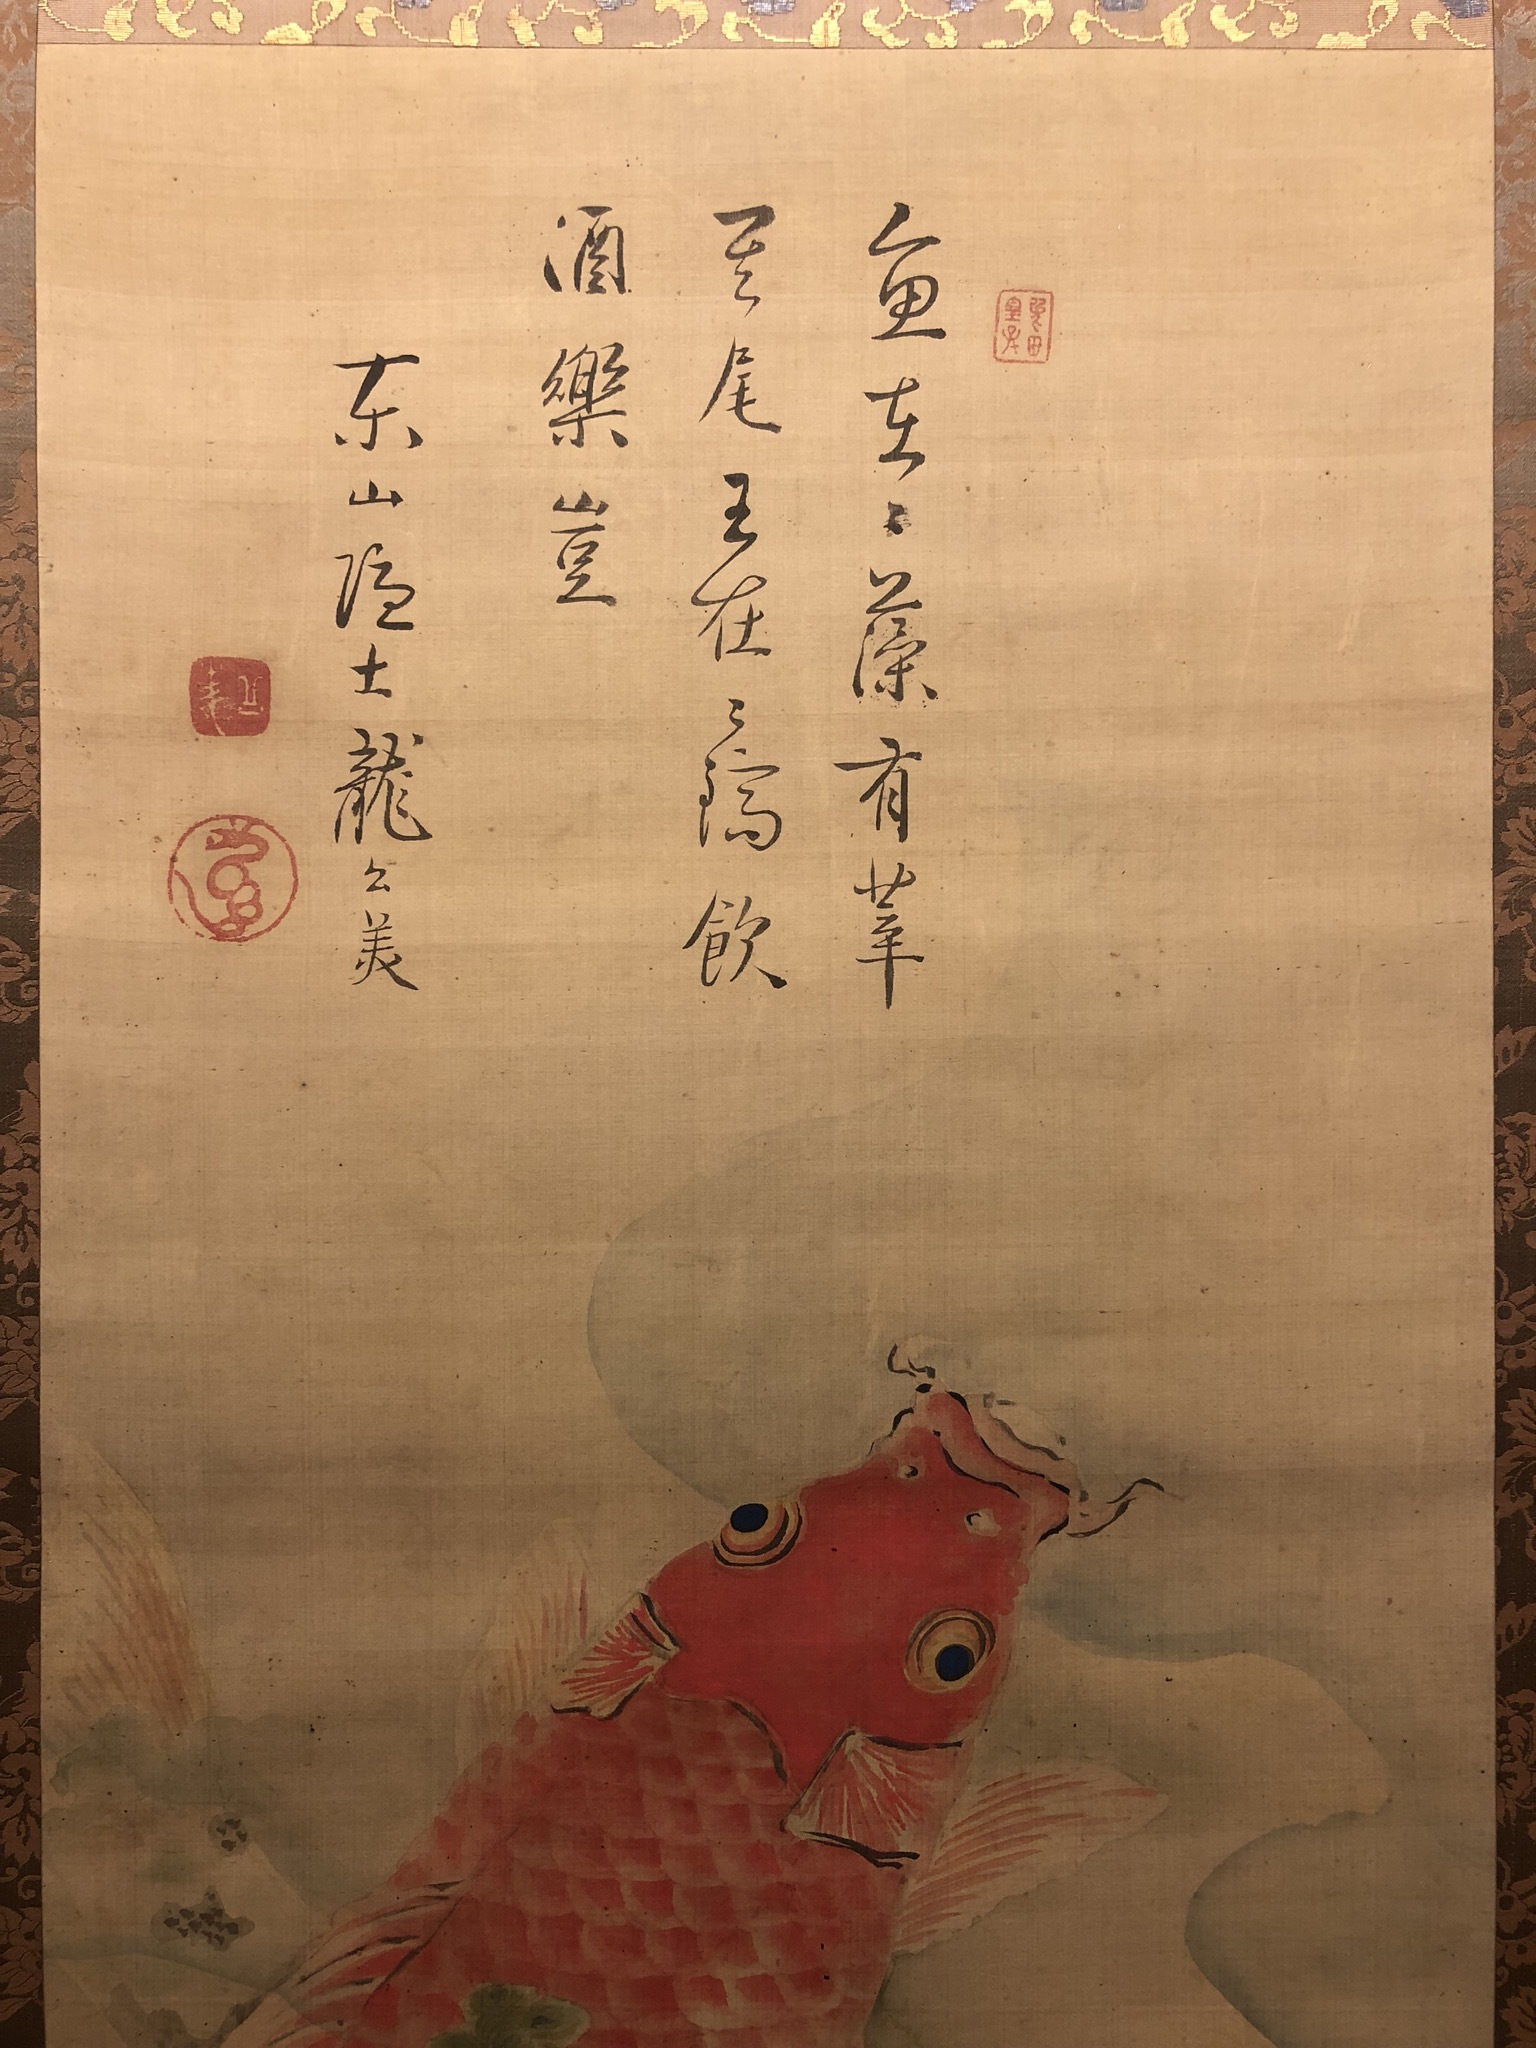 魚在〻藻有莘
其尾王在〻鎬飲
酒樂豈
東山隱士龍公美